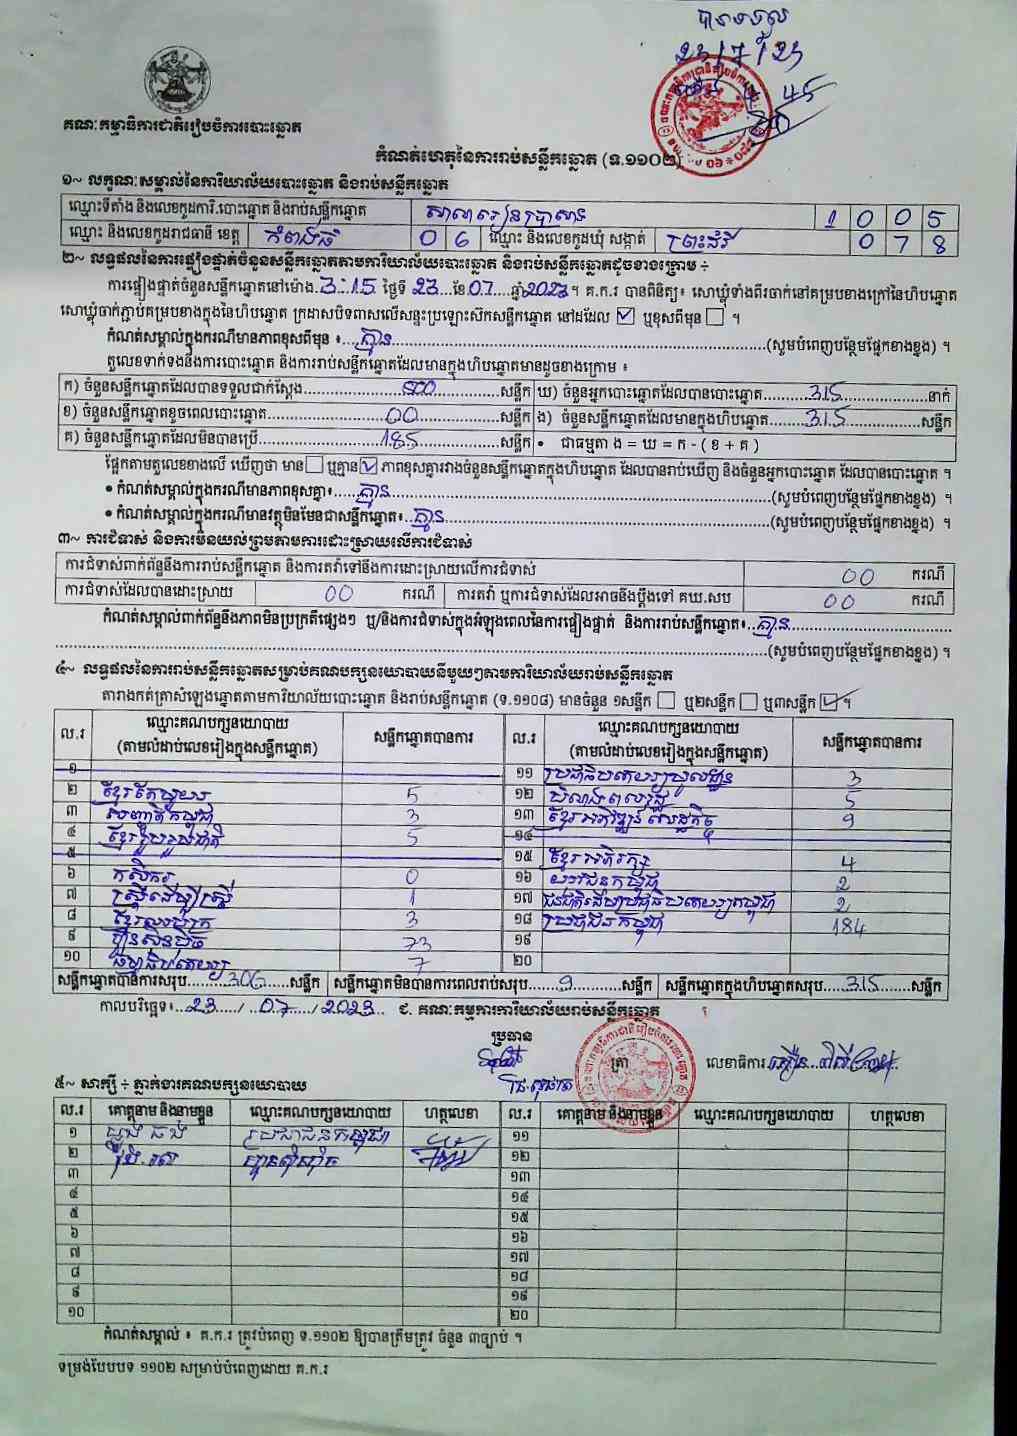 បានទទួល
23/7/23
គណៈកម្មាធិការជាតិរៀបចំការបោះឆ្នោត
កំណត់ហេតុនៃការរាប់សន្លឹកឆ្នោត (ទ.១១០២)
១~ លក្ខណៈសម្គាល់នៃការិយាល័យបោះឆ្នោត និងរាប់សន្លឹកឆ្នោត
ឈ្មោះទីតាំង និងលេខកូដការិ.បោះឆ្នោត និងរាប់សន្លឹកឆ្នោត សាលារៀនប្រាសាទ 1 0 0 5
ឈ្មោះ និងលេខកូដរាជធានី ខេត្ត កំពង់ធំ 0 6 ឈ្មោះ និងលេខកូដឃុំ សង្កាត់ 0 7 8
២~ លទ្ធផលនៃការផ្ទៀងផ្ទាត់ចំនួនសន្លឹកឆ្នោតតាមការិយាល័យបោះឆ្នោត និងរាប់សន្លឹកឆ្នោតដូចខាងក្រោម ÷
ការផ្ទៀងផ្ទាត់ចំនួនសន្លឹកឆ្នោតនៅម៉ោង 3:15 ថ្ងៃទី 23 ខែ 07 ឆ្នាំ 2023 ។ គ.ក.រ បានពិនិត្យ៖ សោឃ្លុំទាំងពីរចាក់នៅគម្របខាងក្រៅនៃហិបឆ្នោត
សោឃ្លុំចាក់ភ្ជាប់គម្របខាងក្នុងនៃហិបឆ្នោត ក្រដាសបិទពាសលើសន្ទះប្រឡោះស៊កសន្លឹកឆ្នោត នៅដដែល ☑ ឬខុសពីមុន ☐ ។
កំណត់សម្គាល់ក្នុងករណីមានភាពខុសពីមុន ៖ គ្មាន (សូមបំពេញបន្ថែមផ្នែកខាងខ្នង) ។
តួលេខទាក់ទងនឹងការបោះឆ្នោត និងការរាប់សន្លឹកឆ្នោតដែលមានក្នុងហិបឆ្នោតមានដូចខាងក្រោម ៖
ក) ចំនួនសន្លឹកឆ្នោតដែលបានទទួលជាក់ស្តែង 500 សន្លឹក ឃ) ចំនួនអ្នកបោះឆ្នោតដែលបានបោះឆ្នោត 315 នាក់
ខ) ចំនួនសន្លឹកឆ្នោតខូចពេលបោះឆ្នោត 00 សន្លឹក ង) ចំនួនសន្លឹកឆ្នោតដែលមានក្នុងហិបឆ្នោត 315 សន្លឹក
គ) ចំនួនសន្លឹកឆ្នោតដែលមិនបានប្រើ 185 សន្លឹក • ជាធម្មតា ង = ឃ = ក - ( ខ + គ )
ផ្អែកតាមតួលេខខាងលើ ឃើញថា មាន ☐ ឬគ្មាន ☑ ភាពខុសគ្នារវាងចំនួនសន្លឹកឆ្នោតក្នុងហិបឆ្នោត ដែលបានរាប់ឃើញ និងចំនួនអ្នកបោះឆ្នោត ដែលបានបោះឆ្នោត ។
• កំណត់សម្គាល់ក្នុងករណីមានភាពខុសគ្នា៖ គ្មាន (សូមបំពេញបន្ថែមផ្នែកខាងខ្នង) ។
• កំណត់សម្គាល់ក្នុងករណីមានវត្ថុមិនមែនជាសន្លឹកឆ្នោត៖ គ្មាន (សូមបំពេញបន្ថែមផ្នែកខាងខ្នង) ។
៣~ ការជំទាស់ និងការមិនយល់ព្រមតាមការដោះស្រាយលើការជំទាស់
ការជំទាស់ពាក់ព័ន្ធនឹងការរាប់សន្លឹកឆ្នោត និងការតវ៉ាទៅនឹងការដោះស្រាយលើការជំទាស់ 00 ករណី
ការជំទាស់ដែលបានដោះស្រាយ 00 ករណី ការតវ៉ា ឬការជំទាស់ដែលអាចនឹងប្តឹងទៅ គឃ.សប 00 ករណី
កំណត់សម្គាល់ពាក់ព័ន្ធនឹងភាពមិនប្រក្រតីផ្សេងៗ ឬ/និងការជំទាស់ក្នុងអំឡុងពេលនៃការផ្ទៀងផ្ទាត់ និងការរាប់សន្លឹកឆ្នោត៖ គ្មាន
(សូមបំពេញបន្ថែមផ្នែកខាងខ្នង) ។
៤~ លទ្ធផលនៃការរាប់សន្លឹកឆ្នោតសម្រាប់គណបក្សនយោបាយនីមួយៗតាមការិយាល័យរាប់សន្លឹកឆ្នោត
តារាងកត់ត្រាសំឡេងឆ្នោតតាមការិយាល័យបោះឆ្នោត និងរាប់សន្លឹកឆ្នោត (ទ.១១០៨) មានចំនួន ១សន្លឹក ☐ ឬ២សន្លឹក ☐ ឬ៣សន្លឹក ☑ ។
ល.រ ឈ្មោះគណបក្សនយោបាយ (តាមលំដាប់លេខរៀងក្នុងសន្លឹកឆ្នោត) សន្លឹកឆ្នោតបានការ ល.រ ឈ្មោះគណបក្សនយោបាយ (តាមលំដាប់លេខរៀងក្នុងសន្លឹកឆ្នោត) សន្លឹកឆ្នោតបានការ
១ ១១ ប្រជាធិបតេយ្យមូលដ្ឋាន 3
២ ខ្មែរតែមួយ 5 ១២ 5
៣ សញ្ជាតិកម្ពុជា 3 ១៣ ខ្មែរអភិវឌ្ឍន៍សេដ្ឋកិច្ច 9
៤ ខ្មែររួបរួមជាតិ 5 ១៤
៥ ១៥ ខ្មែរអភិរក្ស 4
៦ កសិករ 0 ១៦ យុវជនកម្ពុជា 2
៧ ស្រ្តីដើម្បីស្រ្តី 1 ១៧ 2
៨ ខ្មែរឈប់ក្រ 3 ១៨ ប្រជាជនកម្ពុជា 184
៩ ហ៊្វុនស៊ិនប៉ិច 73 ១៩
១០ ធម្មាធិបតេយ្យ 7 ២០
សន្លឹកឆ្នោតបានការសរុប 306 សន្លឹក សន្លឹកឆ្នោតមិនបានការពេលរាប់សរុប 9 សន្លឹក សន្លឹកឆ្នោតក្នុងហិបឆ្នោតសរុប 315 សន្លឹក
កាលបរិច្ឆេទ៖ 23 / 07 / 2023 ជ. គណៈកម្មការការិយាល័យរាប់សន្លឹកឆ្នោត
ប្រធាន
ត្រា លេខាធិការ
៥~ សាក្សី ÷ ភ្នាក់ងារគណបក្សនយោបាយ
ល.រ គោត្តនាម និងនាមខ្លួន ឈ្មោះគណបក្សនយោបាយ ហត្ថលេខា ល.រ គោត្តនាម និងនាមខ្លួន ឈ្មោះគណបក្សនយោបាយ ហត្ថលេខា
១ ប្រជាជនកម្ពុជា ១១
២ ១២
៣ ១៣
៤ ១៤
៥ ១៥
៦ ១៦
៧ ១៧
៨ ១៨
៩ ១៩
១០ ២០
កំណត់សម្គាល់ ៖ គ.ក.រ ត្រូវបំពេញ ទ.១១០២ ឱ្យបានត្រឹមត្រូវ ចំនួន ៣ច្បាប់ ។
ទម្រង់បែបបទ ១១០២ សម្រាប់បំពេញដោយ គ.ក.រ